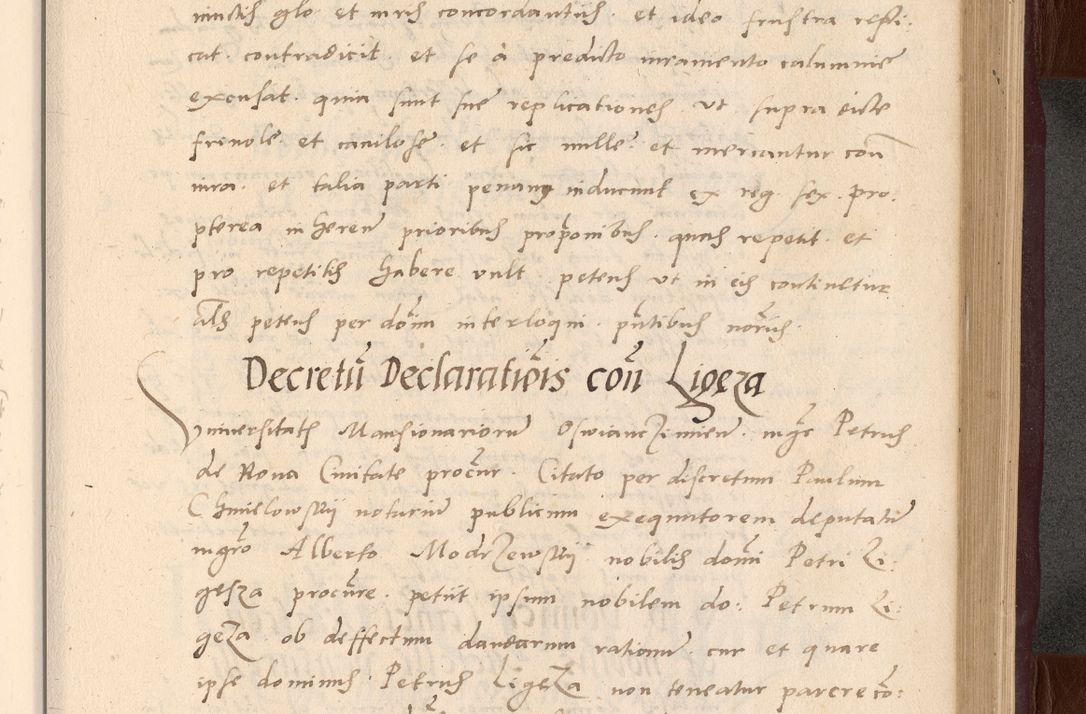 iunctis glo. et iuris concordantiis. et ideo frustra resti:
cat contradicit. et se à predicto iuramento calumnie
excusat. quia sunt sue replicationes ut supra dicte
friuole. et cauilose. et sic nulle. et mercantur con
et talia parti penam inducunt ex reg. sex. pro:
pterea inheren prioribus proponibus. quas repetit. et
pro repetitis habere vult. petens ut in eis continetur
als petens per dom interloqui. pntibus
Decretu Declarationis con Ligeza
Vniuersitatis Mansionarioru Osvianczimien. mgr Petrus
de Noua Ciuitate procur. Citato per discretum Paulum
Chmielowskii notariu publicum exequutorem deputatu
mgro Alberto Modrzewskii nobilis domi Petri Li:
gesza procure. petiit ipsum nobilem do: Petrum Li:
geza. ob deffectum dandarum rationu. cur et quare
ipse dominus Petrus Ligeza non teneatur parere co: